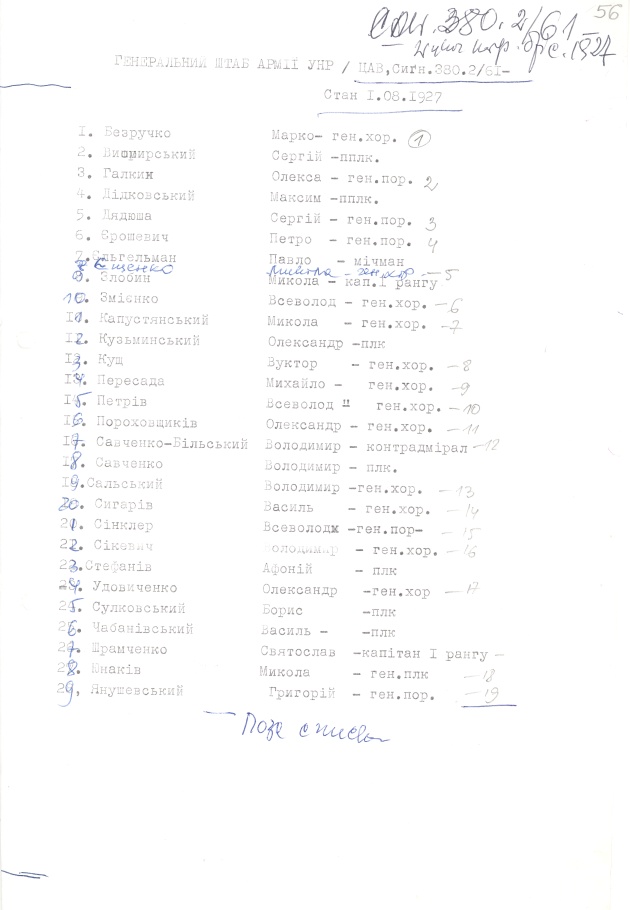 56
Сиг. 380.2/61-
рс. 1927
ГЕНЕРАЛЬНИЙ ШТАБ АРМІЇ УНР / ЦАВ,Сигн.380.2/6I-
Стан I.08.I927
I. Безручко Марко- ген.хор. 1
2. Вишмирський Сергій -пплк.
3. Галкин Олекса - ген.пор. 2
4. Дідковський Максим -пплк.
5. Дядюша Сергій - ген.пор. 3
6. Єрошевич Петро - ген.пор. 4
7.Єльгельман Павло - мічман
8 Єщенко Микола - ген.хор - 5
9. Злобин Микола - кап.I рангу
10. Змієнко Всеволод - ген.хор. - 6
I1. Капустянський Микола - ген.хор. - 7
I2. Кузьминський Олександр -плк
I3. Кущ Вуктор - ген.хор. - 8
I4. Пересада Михайло - ген.хор. - 9
I5. Петрів Всеволод " ген.хор. - 10
I6. Пороховщиків Олександр - ген.хор. - 11
I7. Савченко-Більський Володимир - контрадмірал - 12
I8. Савченко Володимир - плк.
I9.Сальський Володимир -ген.хор. - 13
20. Сигарів Василь - ген.хор. - 14
21. Сінклер Всеволодм -ген.пор- - 15
22. Сікевич Володимир - ген.хор. - 16
23.Стефанів Афоній - плк
24. Удовиченко Олександр -ген.хор - 17
25. Сулковський Борис -плк
26. Чабанівський Василь - -плк
27. Шрамченко Святослав -капітан I рангу -
28. Юнаків Микола - ген.плк - 18
29, Янушевський Григорій - ген.пор. - 19
Поза списком